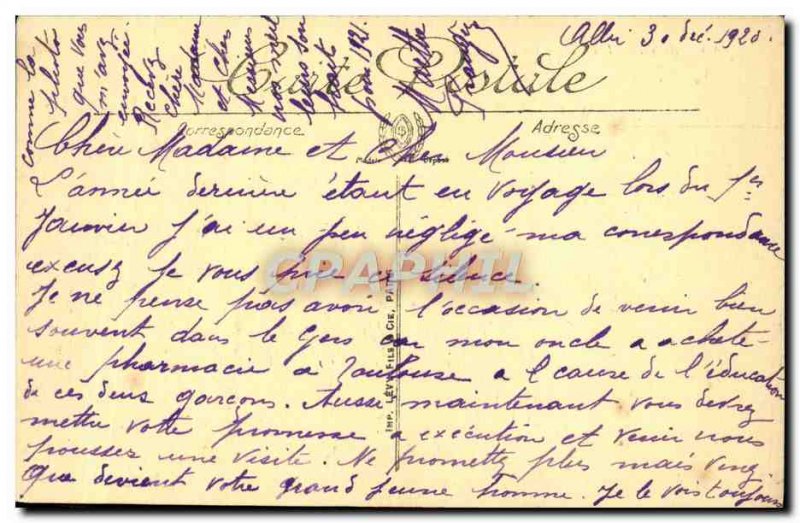 Albi 30 déc. 1920.
Carte Postale
Correspondance
Adresse
Chère Madame et Cher Monsieur
L'année dernière étant en voyage lors du 1er
Janvier j'ai un peu négligé ma correspondance
excusez je vous prie ce silence.
Je ne pense pas avoir l'occasion de venir bien
souvent dans le Gers car mon oncle a acheté
une pharmacie à Toulouse a cause de l'éducation
de ces deus garçons. Aussi maintenant vous devrez
mettre votre promesse a exécution et venir nous
pousser une visite. Ne promettez plus mais venez
Que devient votre grand jeune homme. Je le vois toujours
comme la
photo
que vous
m'avez
envoyée.
Recevez
chère
Madame
et cher
Monsieur
nos meil
leurs sou
haits
pour 1921.
Marthe
IMP. LÉVY FILS & CIE, PARIS
CPAPHIL